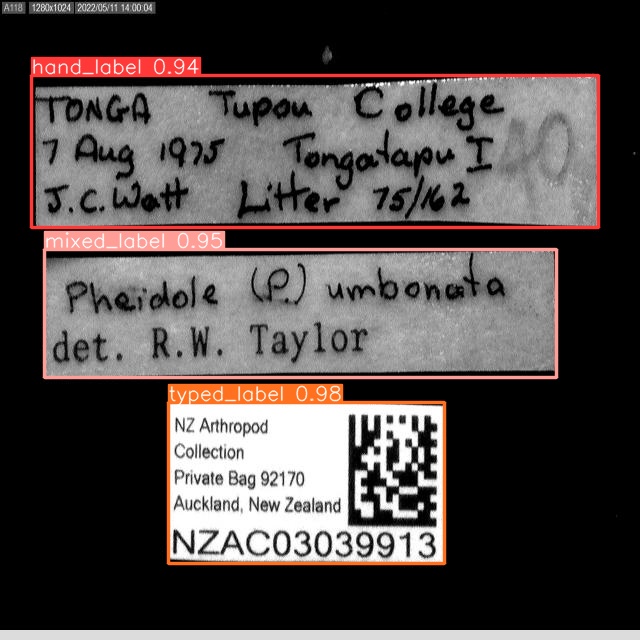 A118 1280x1024 2022/05/11 14:00:04
hand_label 0.94
TONGA Tupou College
7 Aug 1975 Tongatapu I
J.C. Watt Litter 75/162
40
mixed_label 0.95
Pheidole (P.) umbonata
det. R.W. Taylor
typed_label 0.98
NZ Arthropod
Collection
Private Bag 92170
Auckland, New Zealand
NZAC03039913